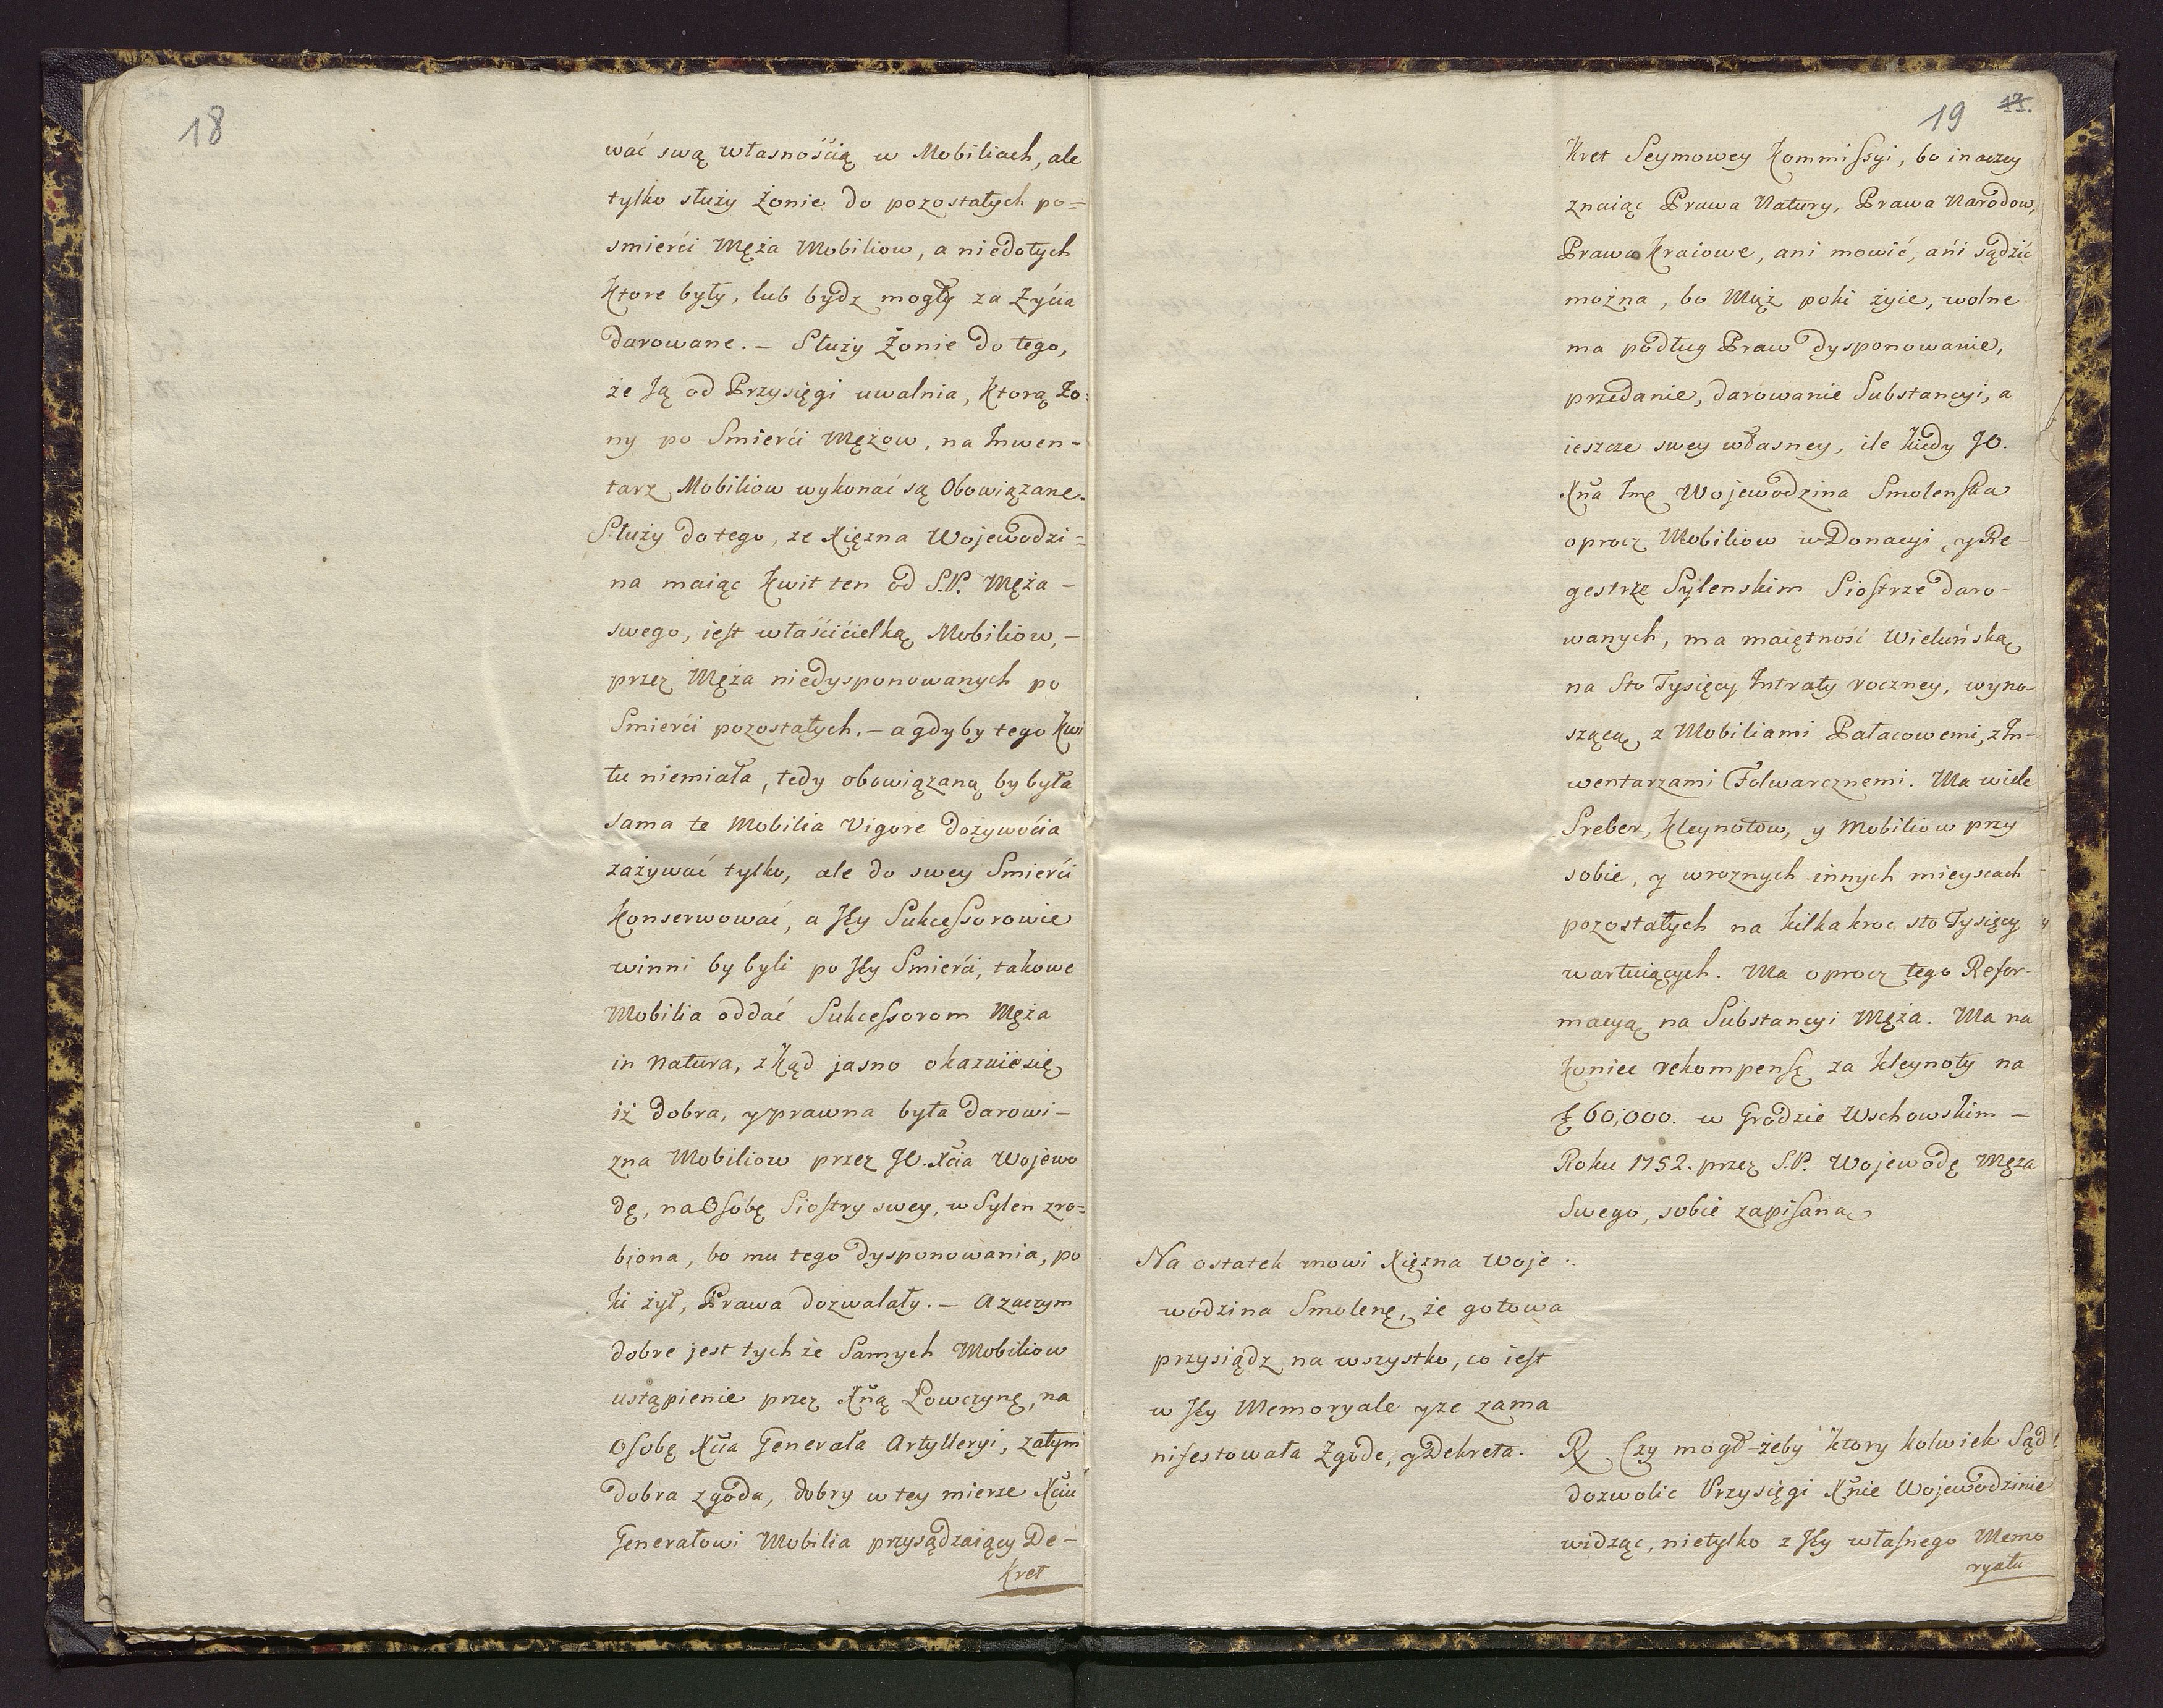 18
wać swą własnośćią w Mobiliach, ale
tylko służy Żonie do pozostałych po=
smierći Męża Mobiliow, a niedotych
ktore były, lub bydz mogły za Zyćia
darowane. – Służy Żonie do tego,
że Ją od Przysięgi uwalnia, ktorą Żo=
ny po Smierći Mężow, na Inwen-
tarz Mobiliow wykonać są Obowiązane.
Służy do tego, ze Xięzna Wojewodzi=
na maiąc Kwit ten od S.P. Męża –
swego, iest właśćićielką Mobiliow, –
przez Męża niedysponowanych po
Smierći pozostałych. – a gdyby tego Kwi
tu niemiała, tedy obowiązaną by była
sama te Mobilia Vigore dożywoćia
zażywać tylko, ale do swey Smierći
Konserwować, a Jey Sukcessorowie
winni by byli po Jey Smierći, takowe
Mobilia oddać Sukcessorom Męża
in Natura, zkąd jasno okazuie się
iż dobra, y prawna była Darowi-
zna Mobiliow przez JO. Xcia Wojewo
dę, na Osobę Siostry swey, w Sylen zro=
biona, bo mu tego dysponowania, po
ki żył, Prawa dozwalały. – A zaczym
dobre jest tych że Samych Mobiliow
ustąpienie przez Xną Łowczynę, na
Osobę Xcia Generała Artylleryi, zatym
dobra zgoda, dobry w tey mierze Xciu
Generałowi Mobilia przysądzaiący De-
kret
19 17.
Kret Seymowey Kommissyi, bo inaczey
znaiąc Prawa Natury, Prawa Narodow,
Prawa Kraiowe, ani mowić, ańi sądzić
można, bo Mąż poki żyie, wolne
ma podług Praw dysponowanie,
przedanie, darowanie Substancyi, a
ieszcze swey własney, ile kiedy JO.
Xna Imę Wojewodzina Smolenska
oprocz Mobiliow w Donacyi, y Re-
gestrze Sylenskim Siostrze daro-
wanych, ma maiętność Wieluńską
na Sto Tysięcy Intraty roczney, wyno-
szącą z Mobiliami Pałacowemi, z In-
wentarzami Folwarcznemi. Ma wiele
Sreber, Kleynotow, y Mobiliow przy
sobie, y wroznych innych mieyscach
pozostałych na kilkakroc sto Tysięcy
wartuiących. Ma oprocz tego Refor-
macyą na Substancyi Męża. Ma na
koniec rekompensę za kleynoty na
ƒ 60,000. w Grodzie Wschowskim –
Roku 1752. przez S.P. Wojewodę Męża
Swego, sobie zapisaną
Na ostatek mowi Xięzna Woje
wodzina Smolenę, że gotowa
przysiądz na wszystko, co iest
w Jey Memoryale y ze zama
nifestowała Zgode, y Dekreta.
Rx Czy mogł-żeby ktory kolwiek Sąd
dozwolic Przysięgi Xnie Wojewodzinie
widząc, nietylko z Jey własnego Memo
ryału